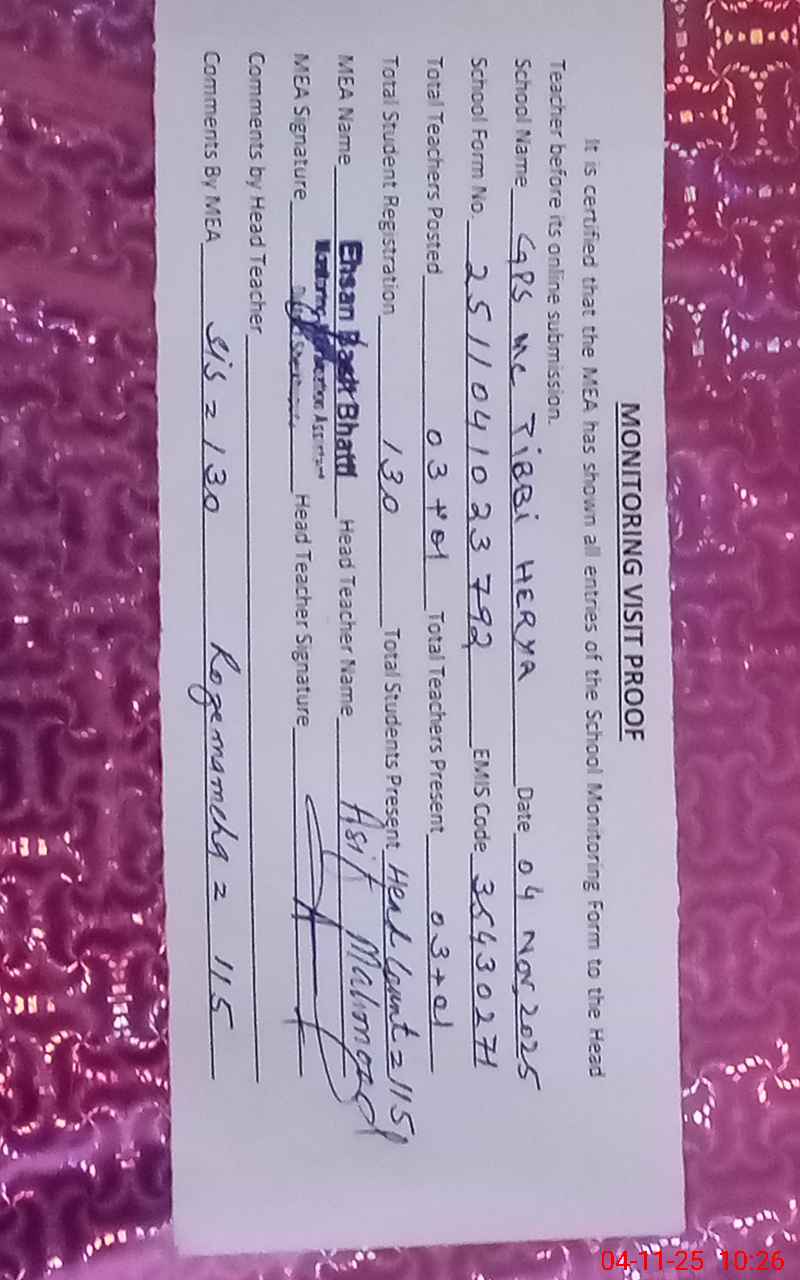 MONITORING VISIT PROOF
It is certified that the MEA has shown all entries of the School Monitoring Form to the Head
Teacher before its online submission.
School Name GPS MC TiBBi HERYA Date 04 Nov, 2025
School Form No. 2511041023792 EMIS Code 35430271
Total Teachers Posted 03+01 Total Teachers Present 03+01
Total Student Registration 130 Total Students Present Head Count = 115
MEA Name Ehsan Bhatti Head Teacher Name Asif Mahmood
Monitoring Assistant
MEA Signature Head Teacher Signature
Comments by Head Teacher
Comments By MEA SIS = 130 Rozenamcha = 115
04-11-25 10:26